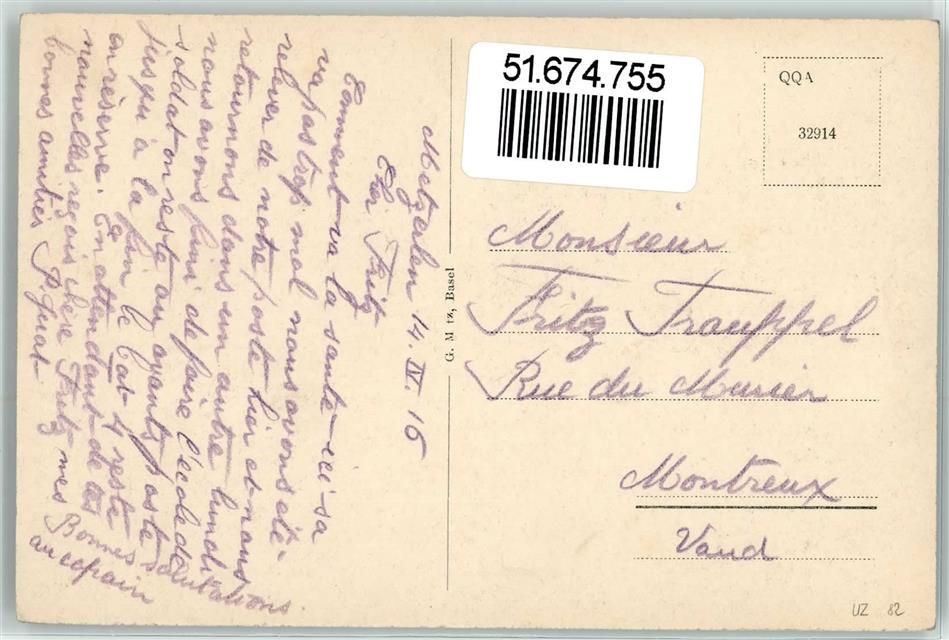 Metzerlen 14. IV. 16
Cher Fritz
Comment va la santé ici sa
va pas trop mal nous avons été
relever de notre poste hier et nous
retournons dans un autre lundi
nous avons fini de faire l'école de
soldat on reste au ayants poste
jusqu'à la fin le Bat 4 reste
en réserve. En attendant de tes
nouvelles reçois cher Fritz mes
bonnes amitiés
Bonnes salutations
au copain
51.674.755
QQA
32914
G. M tz, Basel
Monsieur
Fritz Trauppel
Rue du Marier
Montreux
Vaud
UZ 82